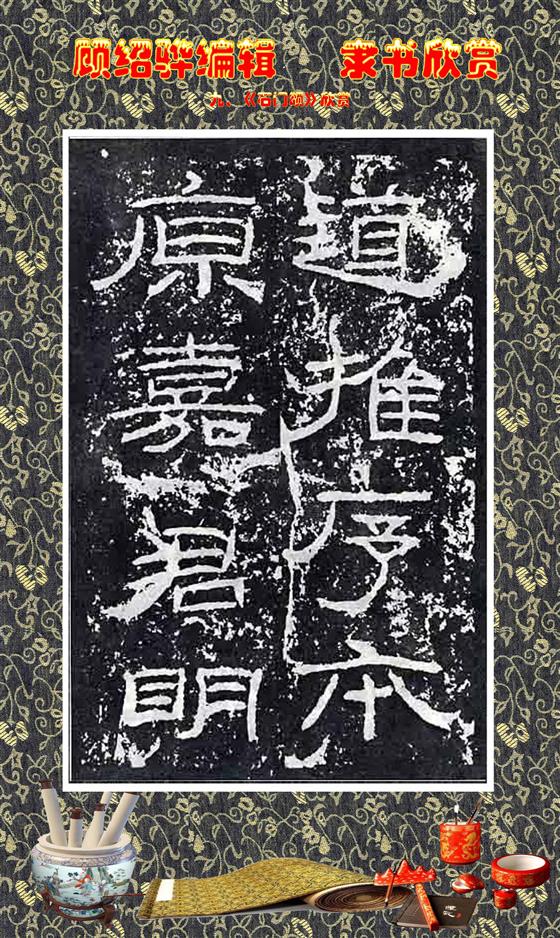 顾绍骅编辑 隶书欣赏
九、《石门颂》欣赏
道推序本
原嘉君明